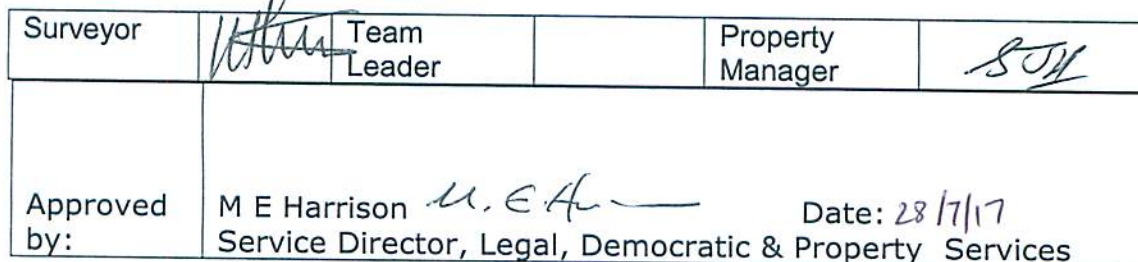 Surveyor Team Leader Property Manager SJH
Approved by: M E Harrison M. E. Ha Date: 28/7/17
Service Director, Legal, Democratic & Property Services